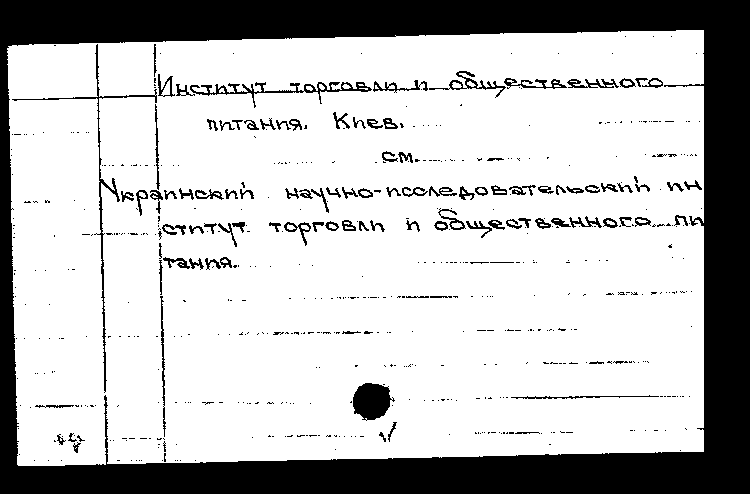 Институт торговли и общественного
питания. Киев.
см.
Украинский научно-исследовательский ин
ститут торговли и общественного пи
тания.